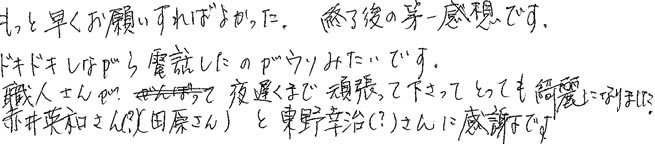 もっと早くお願いすればよかった。 終了後の第一感想です。
ドキドキしながら電話したのがウソみたいです。
職人さんが、がんばって 夜遅くまで頑張って下さって とっても綺麗になりました。
赤井英和さん(?)(田原さん) と東野幸治(?)さんに感謝です